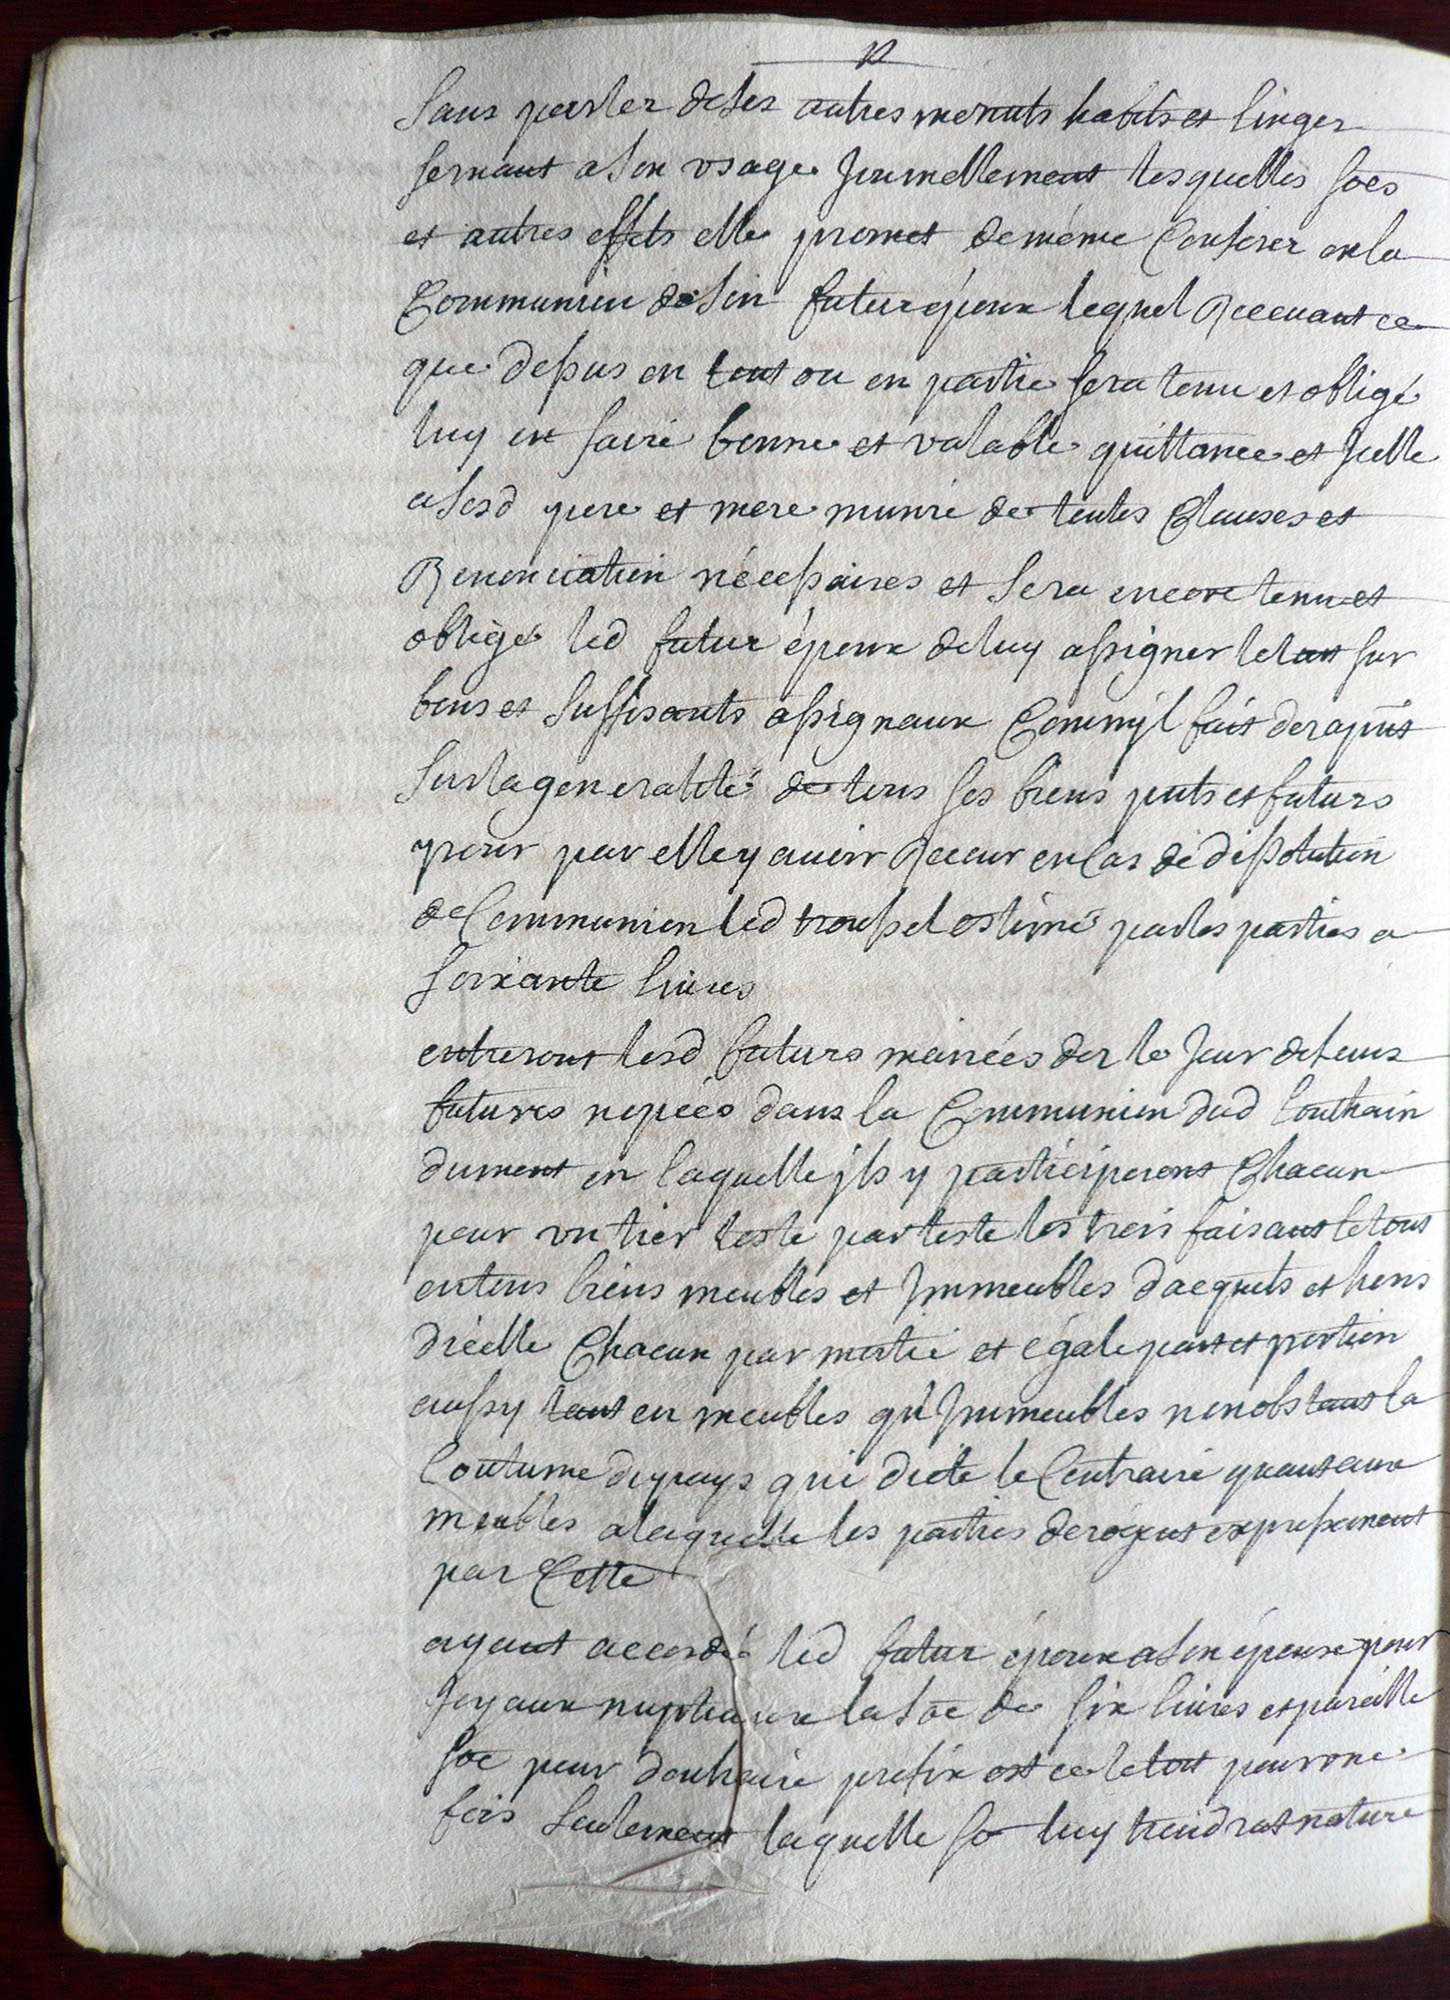 sans parler de ses autres menuts habits et linges
servant a son usage journellement lesquelles soes
et autres effets elle promet de méme Conferer en la
Communion de son futur époux lequel Recevant ce
que dessus en tout ou en partie sera tenu et obligé
luy en faire bonne et valable quittance et Jcelle
a sesd pere et mere munie de toutes Clauses et
Renonciation nécessaires et sera encore tenu et
obligé led futur époux de luy assigner le tout sur
bons et suffisants assignaux Comm'jl fait des apnt
sur la generalité de tous ses biens pnts et futurs
pour par elle y avoir Recour en Cas de dissolution
de Communion led troussel estimé par les parties a
soixante livres
entreront lesd futurs mariées des le Jour de leurs
futures nopces dans la Communion dud Louthain
dument en laquelle jls y participeront Chacun
pour un tier teste par teste les trois faisant le tous
en tous biens meubles et Jmmeubles d'acquets et hors
d'icelle Chacun par moitié et égale part et portion
aussy tant en meubles qu'Jmmeubles nonobstant la
Coutume du pays qui dicte le Contraire quant aux
meubles a laquelle les parties derogent expressement
par Cette
ayant accordé led futur époux a son épouse pour
Joyaux nuptiaux la soe de six livres et pareille
soe pour douhaire prefix et ce le tout pour une
fois seulement laquelle so luy tiendrat nature